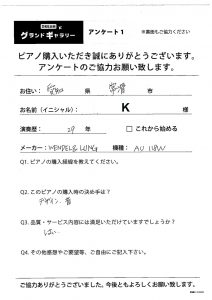 グランドギャラリー アンケート1 ※裏面もご協力ください
ピアノ購入いただき誠にありがとうございます。
アンケートのご協力お願い致します。
お住い: 愛知 県 常滑 市
お名前(イニシャル): K 様
演奏歴: 29 年 □ これから始める
メーカー: WENDL&LUNG 機種: AU 118W
Q1. ピアノの購入経緯を教えてください。
Q2. このピアノの購入時の決め手は?
デザイン、音
Q3. 品質・サービス内容には満足いただけていますでしょうか?
はい
Q4. その他感想やご要望等、ご自由にご記入下さい。
ご協力ありがとうございました。今後ともよろしくお願い致します。